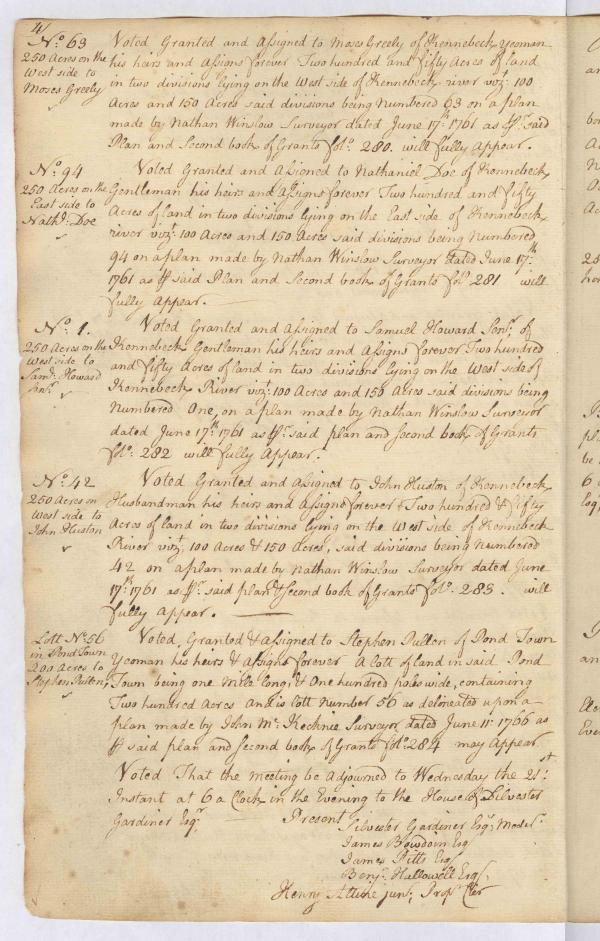 4/
No. 63
250 Acres on the
West side to
Moses Greely
Voted Granted and Assigned to Moses Greely of Kennebeck yeoman
his heirs and Assigns forever Two hundred and fifty Acres of land
in two divisions lying on the West side of Kennebeck river vizt. 100
Acres and 150 Acres said divisions being Numbered 63 on a plan
made by Nathan Winslow Surveyor dated June 17th. 1761 as pr. said
Plan and Second book of Grants folo. 280. will fully Appear.
No. 94
250 Acres on the
East side to
Nathl. Doe
Voted Granted and Assigned to Nathaniel Doe of Kennebeck
Gentleman his heirs and Assigns forever Two hundred and fifty
Acres of land in two divisions lying on the East side of Kennebeck
river vizt. 100 Acres and 150 Acres said divisions being Numbered
94 on a plan made by Nathan Winslow Surveyor dated June 17th.
1761 as pr said Plan and Second book of Grants folo. 281 will
fully Appear.
No. 1.
250 Acres on the
West side to
Saml. Howard
Senr.
Voted Granted and Assigned to Samuel Howard Senr. of
Kennebeck Gentleman his heirs and Assigns forever Two hundred
and fifty acres of land in two divisions lying on the West side of
Kennebeck River vizt. 100 Acres and 150 Acres said divisions being
Numbered One, on a plan made by Nathan Winslow Surveyor
dated June 17th. 1761 as pr. said plan and second book of Grants
folo. 282 will fully Appear.
No. 42
250 Acres on
West side to
John Huston
Voted Granted and assigned to John Huston of Kennebeck
Husbandman his heirs and Assigns forever Two hundred & fifty
Acres of land in two divisions lying on the West side of Kennebeck
River vizt. 100 Acres & 150 Acres, said divisions being Numbered
42 on a plan made by Nathan Winslow Surveyor dated June
17th. 1761 as pr. said plan & second book of Grants folo. 283. will
fully Appear.
Lott No. 56
in Pond Town
200 Acres to
Stephen Pullen
Voted, Granted & assigned to Stephen Pullen of Pond Town
Yeoman his heirs & Assigns forever A lott of land in said Pond
Town being one mile long, & One hundred poles wide, containing
Two hundred Acres and is lott number 56 as delineated upon a
plan made by John Mc. Kechnie Surveyor, dated June 11. 1766 as
pr said plan and second book of Grants folo. 284 may Appear
Voted That the meeting be adjourned to Wednesday the 21st.
Instant at 6 a Clock in the Evening to the House of Silvester
Gardiner Esqr.
Present
Silvester Gardiner Esqr. Moder.
James Bowdoin Esq
James Pitts Esq
Benj. Hallowell Esq.
Henry Alline junr. Propr. Cler